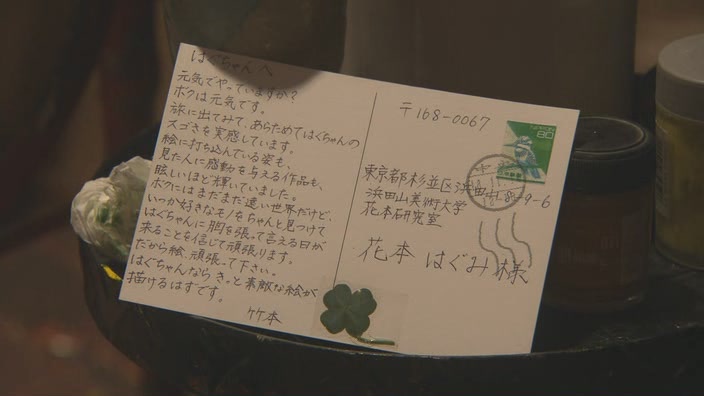 はぐちゃんへ
元気でやっていますか?
ボクは元気です。
旅に出てみて、あらためてはぐちゃんの
スゴさを実感しています。
絵に打ち込んでいる姿も、
見た人に感動を与える作品も、
眩しいほど輝いていました。
ボクにはまだまだ遠い世界だけど、
いつか好きなモノをちゃんと見つけて
はぐちゃんに胸を張って言える日が
来ることを信じて頑張ります。
だから絵、頑張って下さい。
はぐちゃんなら、きっと素敵な絵が
描けるはずです。
竹本
〒168-0067
80
東京都杉並区浜田山
9-6
浜田山美術大学
花本研究室
花本 はぐみ 様